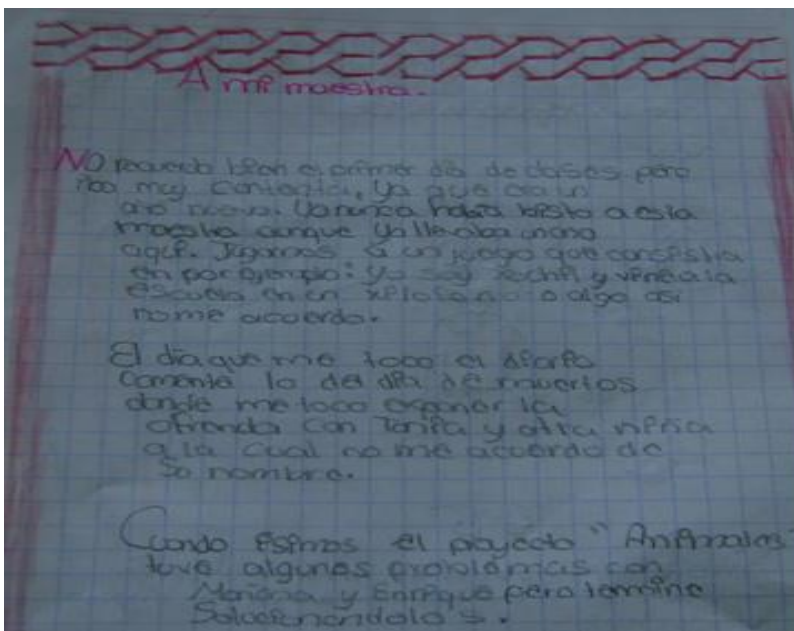 A mi maestra.
NO recuerdo bien el primer día de clases pero
iba muy contenta, ya que era un
año nuevo. Yo nunca había bisto a esta
maestra aunque yo llevaba un año
aquí. Jugamos a un juego que consistia
en por ejemplo: yo soy Xochitl y vine a la
escuela en un o algo asi
no me acuerdo.
El dia que me toco el diario
Comente lo del día de muertos
donde me toco organar la
ofrenda con Tania y otra niña
a la cual no me acuerdo de
so nombre.
Cuando isimos el proyecto "Animales"
tuve algunos problemas con
Mariana y Enrique pero termine
Solucionandolo's.